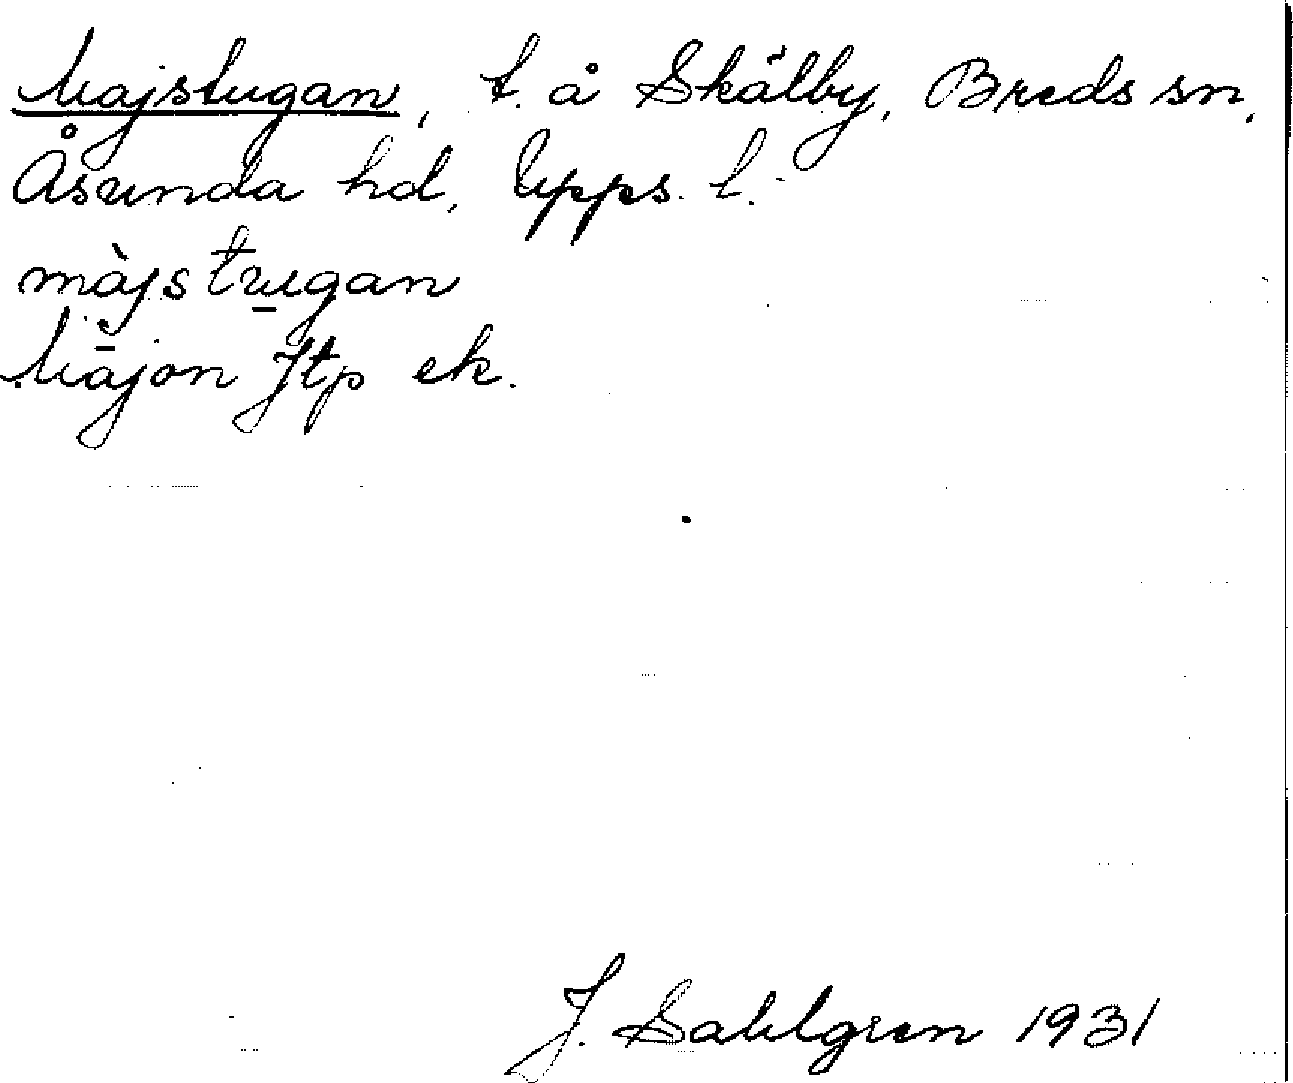 Majstugan, t. å Skälby, Breds sn,
Åsunda hd, Upps. l.
màjstu̱gan
Mä̀jon Jtp ek.
J. Sahlgren 1931